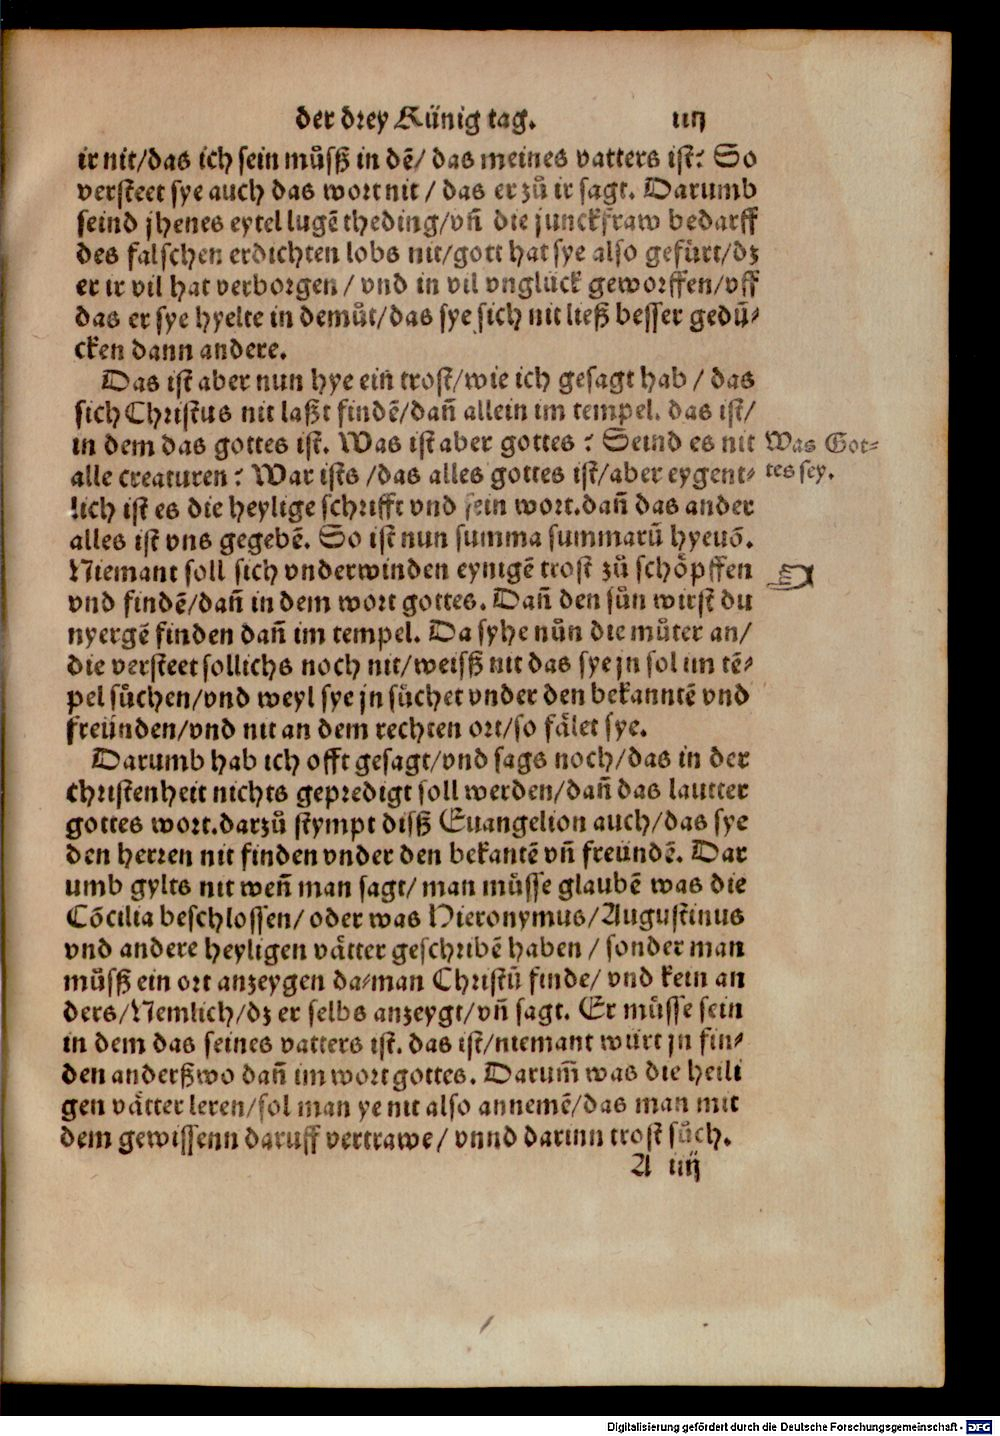 der drey Künig tag. iiij
ir nit/das ich sein můsß in dē/ das meines vatters ist? So
versteet sye auch das wort nit / das er zů ir sagt. Darumb
seind jhenes eytel lugē theding/vñ die junckfraw bedarff
des falschen erdichten lobs nit/gott hat sye also gefürt/dz
er ir vil hat verborgen / vnd in vil vnglück geworffen/vff
das er sye hyelte in demůt/das sye sich nit ließ besser gedū⸗
cken dann andere.
Das ist aber nun hye ein trost/wie ich gesagt hab / das
sich Christus nit laßt findē/dañ allein im tempel. das ist/
in dem das gottes ist. Was ist aber gottes ? Seind es nit
Was Got⸗
alle creaturen? War ists /das alles gottes ist/aber eygent⸗
tes sey.
lich ist es die heylige schrifft vnd sein wort.dañ das ander
alles ist vns gegebē. So ist nun summa summarū hyeuō.
Niemant soll sich vnderwinden eynigē trost zů schöpffen
vnd findē/dañ in dem wort gottes. Dañ den sůn wirst du
nyergē finden dañ im tempel. Da syhe nůn die můter an/
die versteet sollichs noch nit/weisß nit das sye jn sol im tē⸗
pel sůchen/vnd weyl sye jn sůchet vnder den bekanntē vnd
freünden/vnd nit an dem rechten ort/so fälet sye.
Darumb hab ich offt gesagt/vnd sags noch/das in der
christenheit nichts gepredigt soll werden/dañ das lautter
gottes wort.darzů stympt disß Euangelion auch/das sye
den herren nit finden vnder den bekantē vñ freündē. Dar
umb gylts nit weñ man sagt/ man müsse glaubē was die
Cōcilia beschlossen/ oder was Hieronymus/Augustinus
vnd andere heyligen vätter geschribē haben / sonder man
můsß ein ort anzeygen da⸗man Christū finde/ vnd kein an
ders/Nemlich/dz er selbs anzeygt/vñ sagt. Er müsse sein
in dem das seines vatters ist. das ist/niemant würt jn fin⸗
den anderßwo dañ im wort gottes. Darum̃ was die heili
gen vätter leren/sol man ye nit also annemē/das man mit
dem gewissenn daruff vertrawe/ vnnd darinn trost sůch.
A iiij
Digitalisierung gefördert durch die Deutsche Forschungsgemeinschaft - DFG